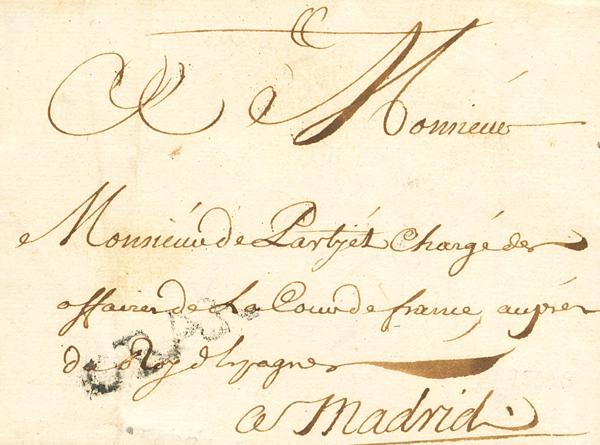 A Monsieur
Monsieur de Partyét Chargé des
affaires de La Cour de france, auprés
du Roy d'Espagne
a Madrid.